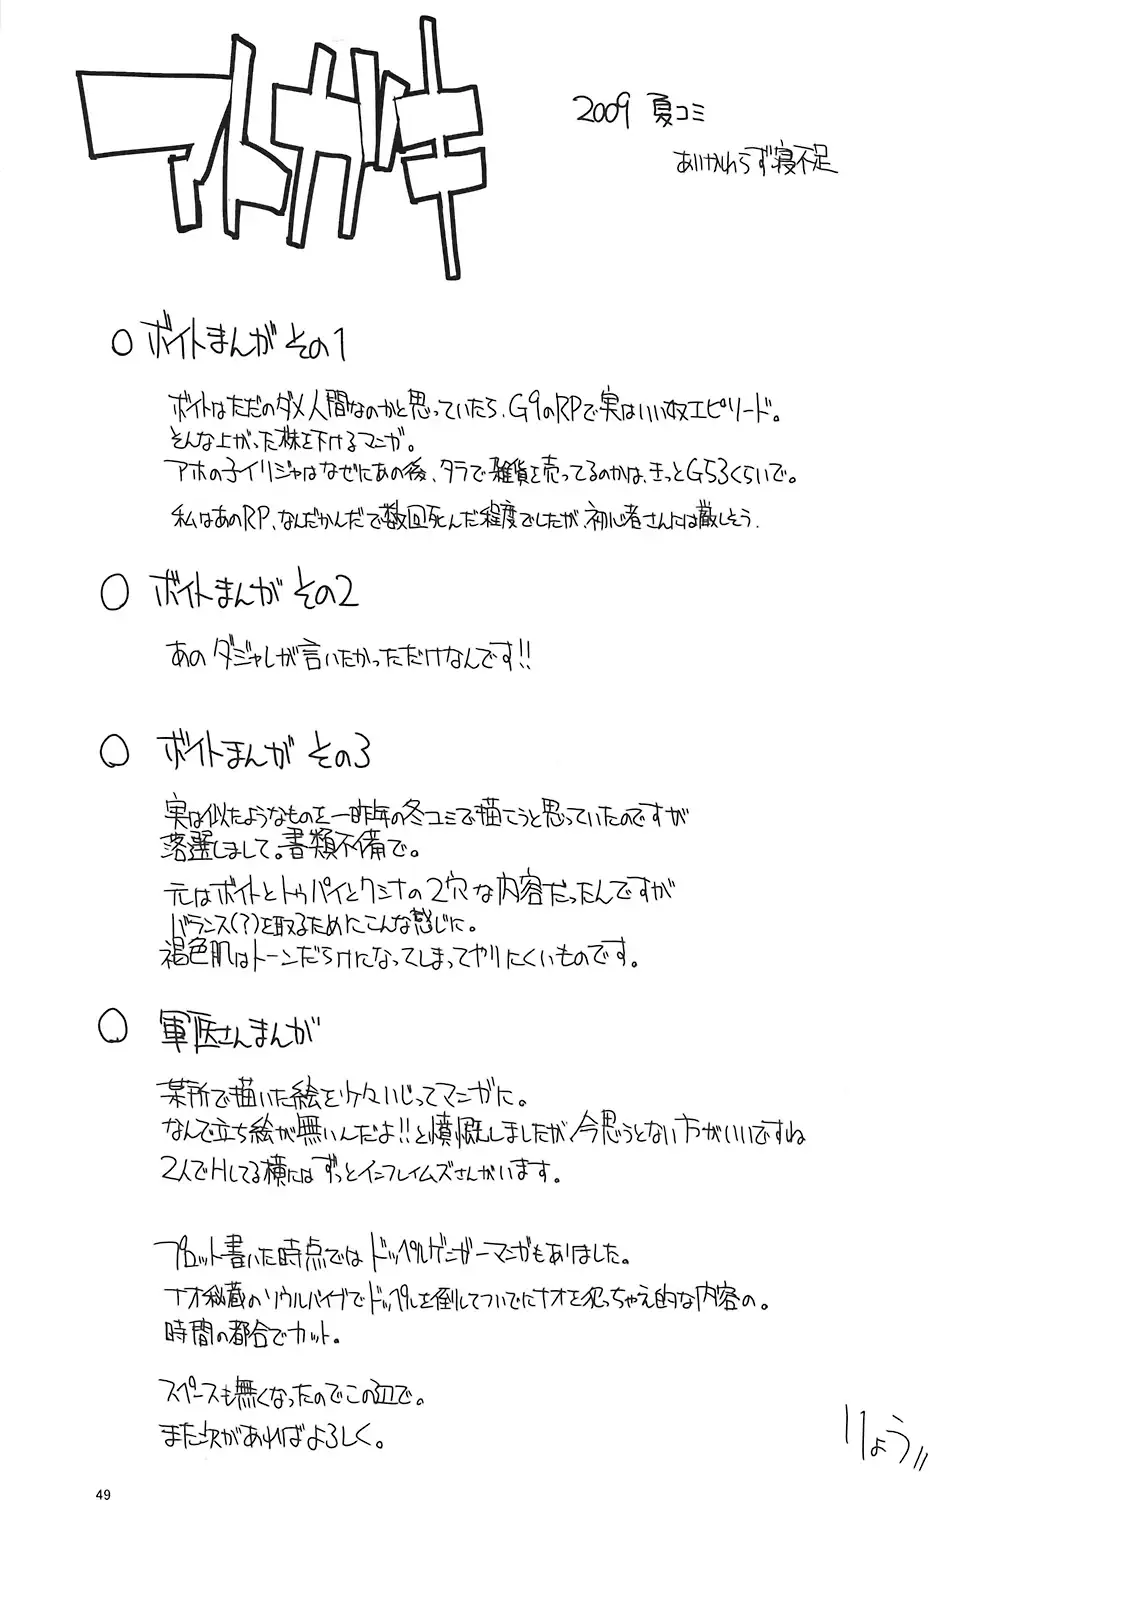 アトガキ
2009 夏コミ
あいかわらず寝不足
○ ボイトまんが その1
ボイトはただのダメ人間なのかと思っていたら、G9のRPで実はいい奴エピソード。
そんな上がった株を下げるマンガ。
アホの子イリジャはなぜにあの後、タラで雑貨を売ってるのかは、きっとG53くらいで。
私はあのRP、なんだかんだで数回死んだ程度でしたが、初心者さんには厳しそう.
○ ボイトまんが その2
あのダジャレが言いたかっただけなんです!!
○ ボイトまんが その3
実は似たようなものを一昨年の冬コミで描こうと思っていたのですが
落選しまして。書類不備で。
元はボイトとトゥパイとクシナの2穴な内容だったんですが
バランス(?)を取るためにこんな感じに。
褐色肌はトーンだらけになってしまってやりにくいものです。
○ 軍医さんまんが
某所で描いた絵を少々いじってマンガに。
なんで立ち絵が無いんだよ!!と憤慨しましたが、今思うとない方がいいですね
2人でHしてる横にはずっとインフレイムズさんがいます。
プロット書いた時点ではドッペルゲンガーマンガもありました。
ナオ秘蔵のソウルバイブでドッペルを倒してついでにナオを犯っちゃえ的な内容の。
時間の都合でカット。
スペースも無くなったのでこの辺で。
また次があればよろしく。
りょう〃
49